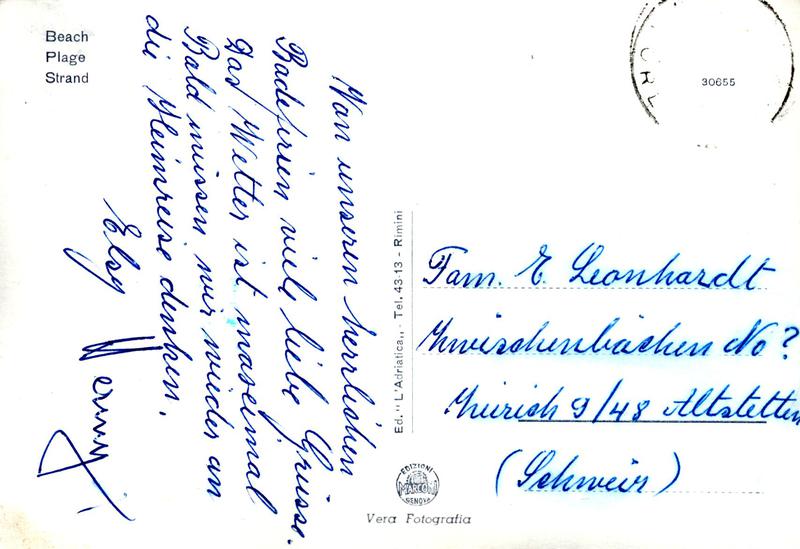 Beach
Plage
Strand
Von unseren herrlichen
Badeferien viele liebe Grüsse.
Das Wetter ist maximal
Bald müssen wir wieder an
die Heimreise denken.
Elsy
Ed. "L'Adriatica,, - Tel. 43-13 - Rimini
30655
Fam. E. Leonhardt
Zwischenbächen No ?
Zürich 9/48 Altstetten
(Schweiz)
EDIZIONI
MARCONI
GENOVA
Vera Fotografia